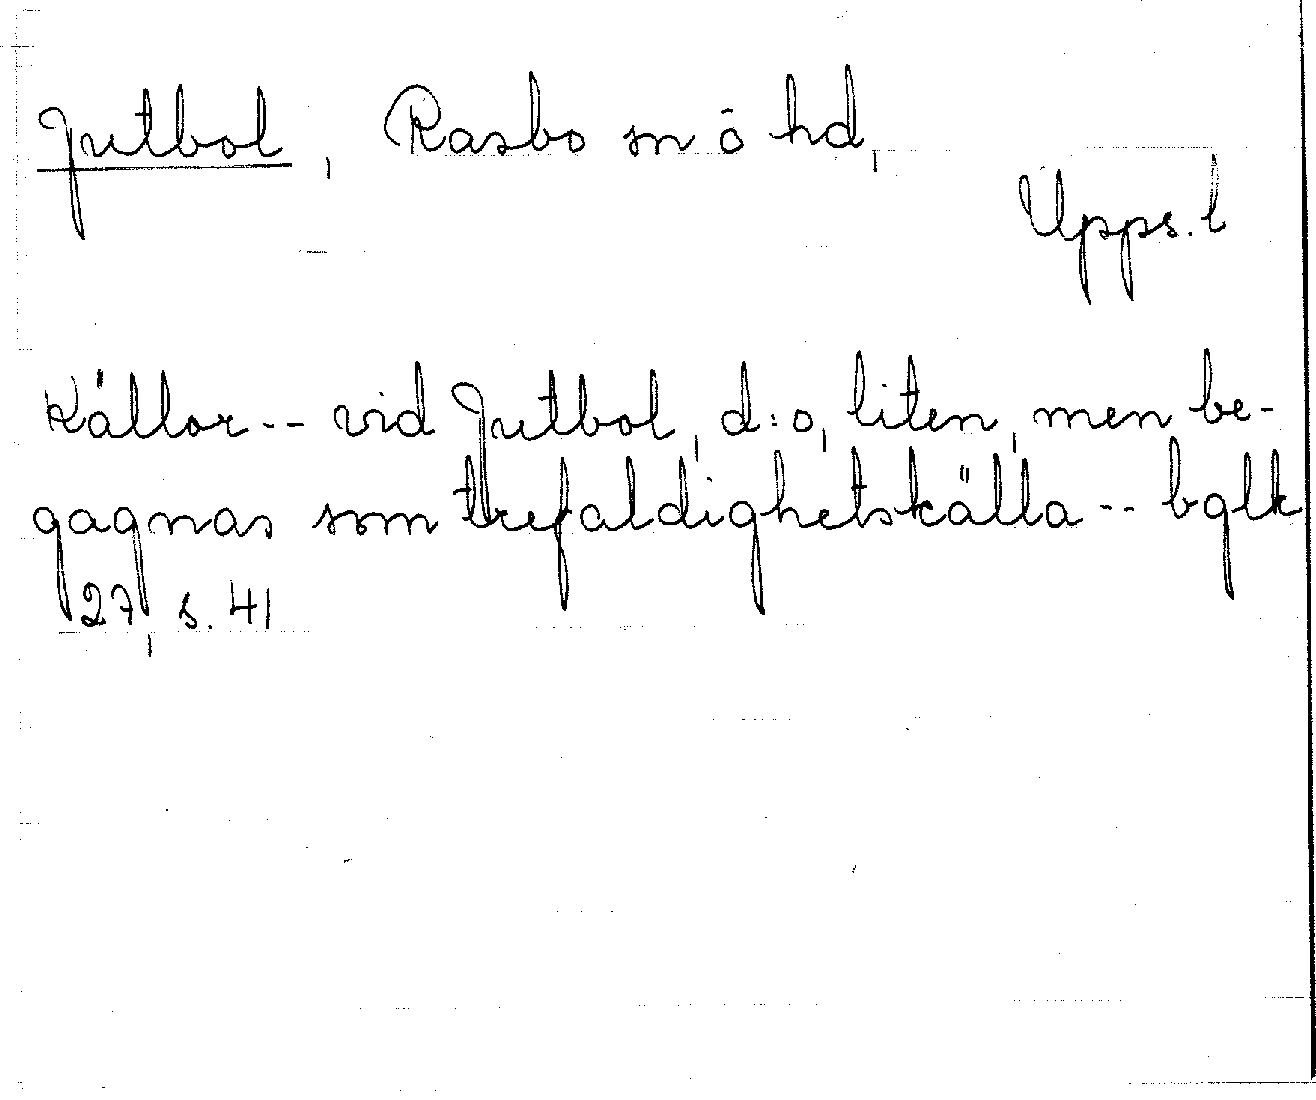 Jutbol, Rasbo sn o hd,
Upps. l
Källor -- vid Jutbol, d:o, liten, men be-
gagnas som trefaldighetskälla -- bglk
27, s. 41